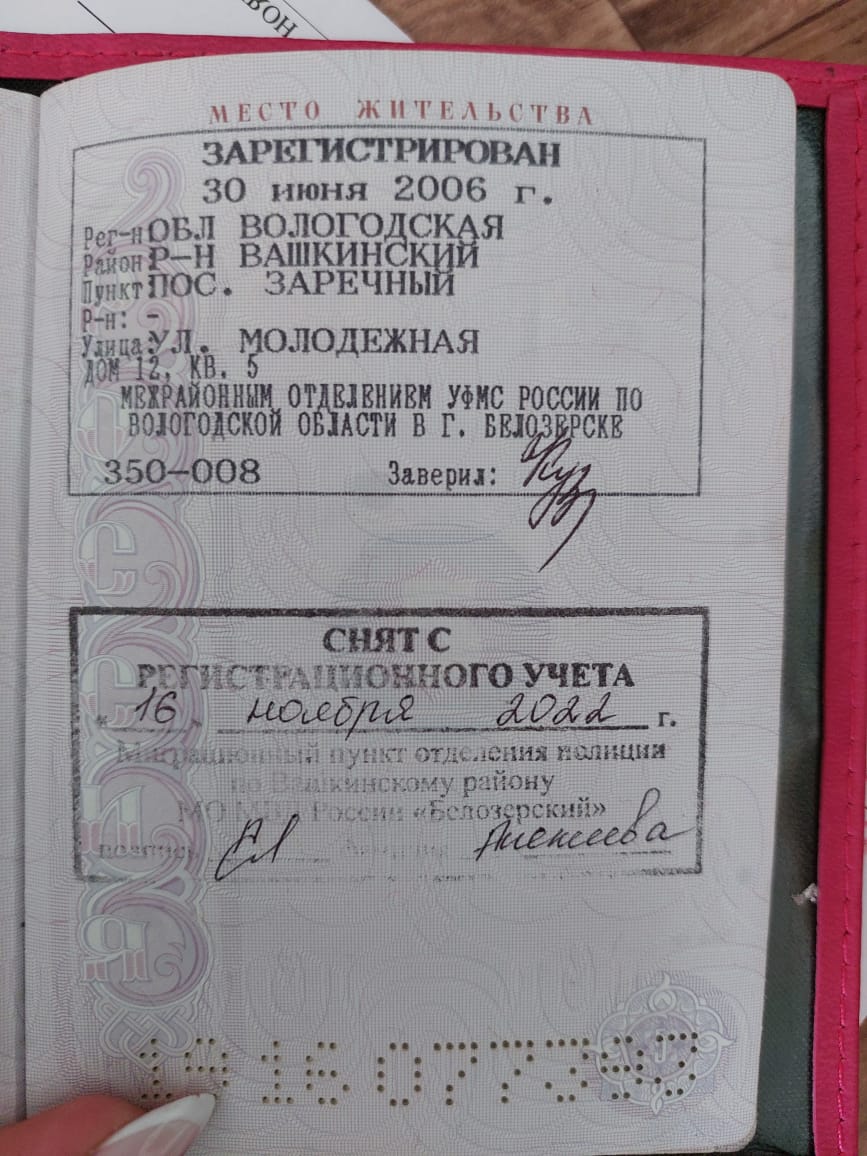 МЕСТО ЖИТЕЛЬСТВА
ЗАРЕГИСТРИРОВАН
30 июня 2006 г.
Рег-н ОБЛ ВОЛОГОДСКАЯ
Район Р-Н ВАШКИНСКИЙ
Пункт ПОС. ЗАРЕЧНЫЙ
Р-н: -
Улица: УЛ. МОЛОДЕЖНАЯ
ДОМ 12, КВ. 5
МЕЖРАЙОННЫМ ОТДЕЛЕНИЕМ УФМС РОССИИ ПО
ВОЛОГОДСКОЙ ОБЛАСТИ В Г. БЕЛОЗЕРСКЕ
350-008 Заверил:
СНЯТ С
РЕГИСТРАЦИОННОГО УЧЕТА
« 16 » ноября 2022 г.
Миграционный пункт отделения полиции
по Вашкинскому району
МО МВД России «Белозерский»
подпись
19 16 077387